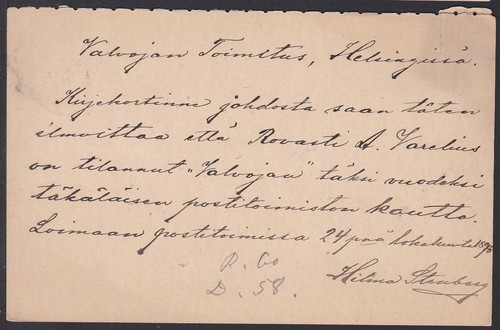 Valvojan Toimitus, Helsingissä.
Kirjekortinne johdosta saan täten
ilmoittaa että Rovasti A. Varelius
on tilannut „Valvojan" täksi vuodeksi
täkäläisen postitoimiston kautta.
Loimaan postitoimissa 24 pnä lokakuuta
Hilma Stenberg
P. 60
D. 58.